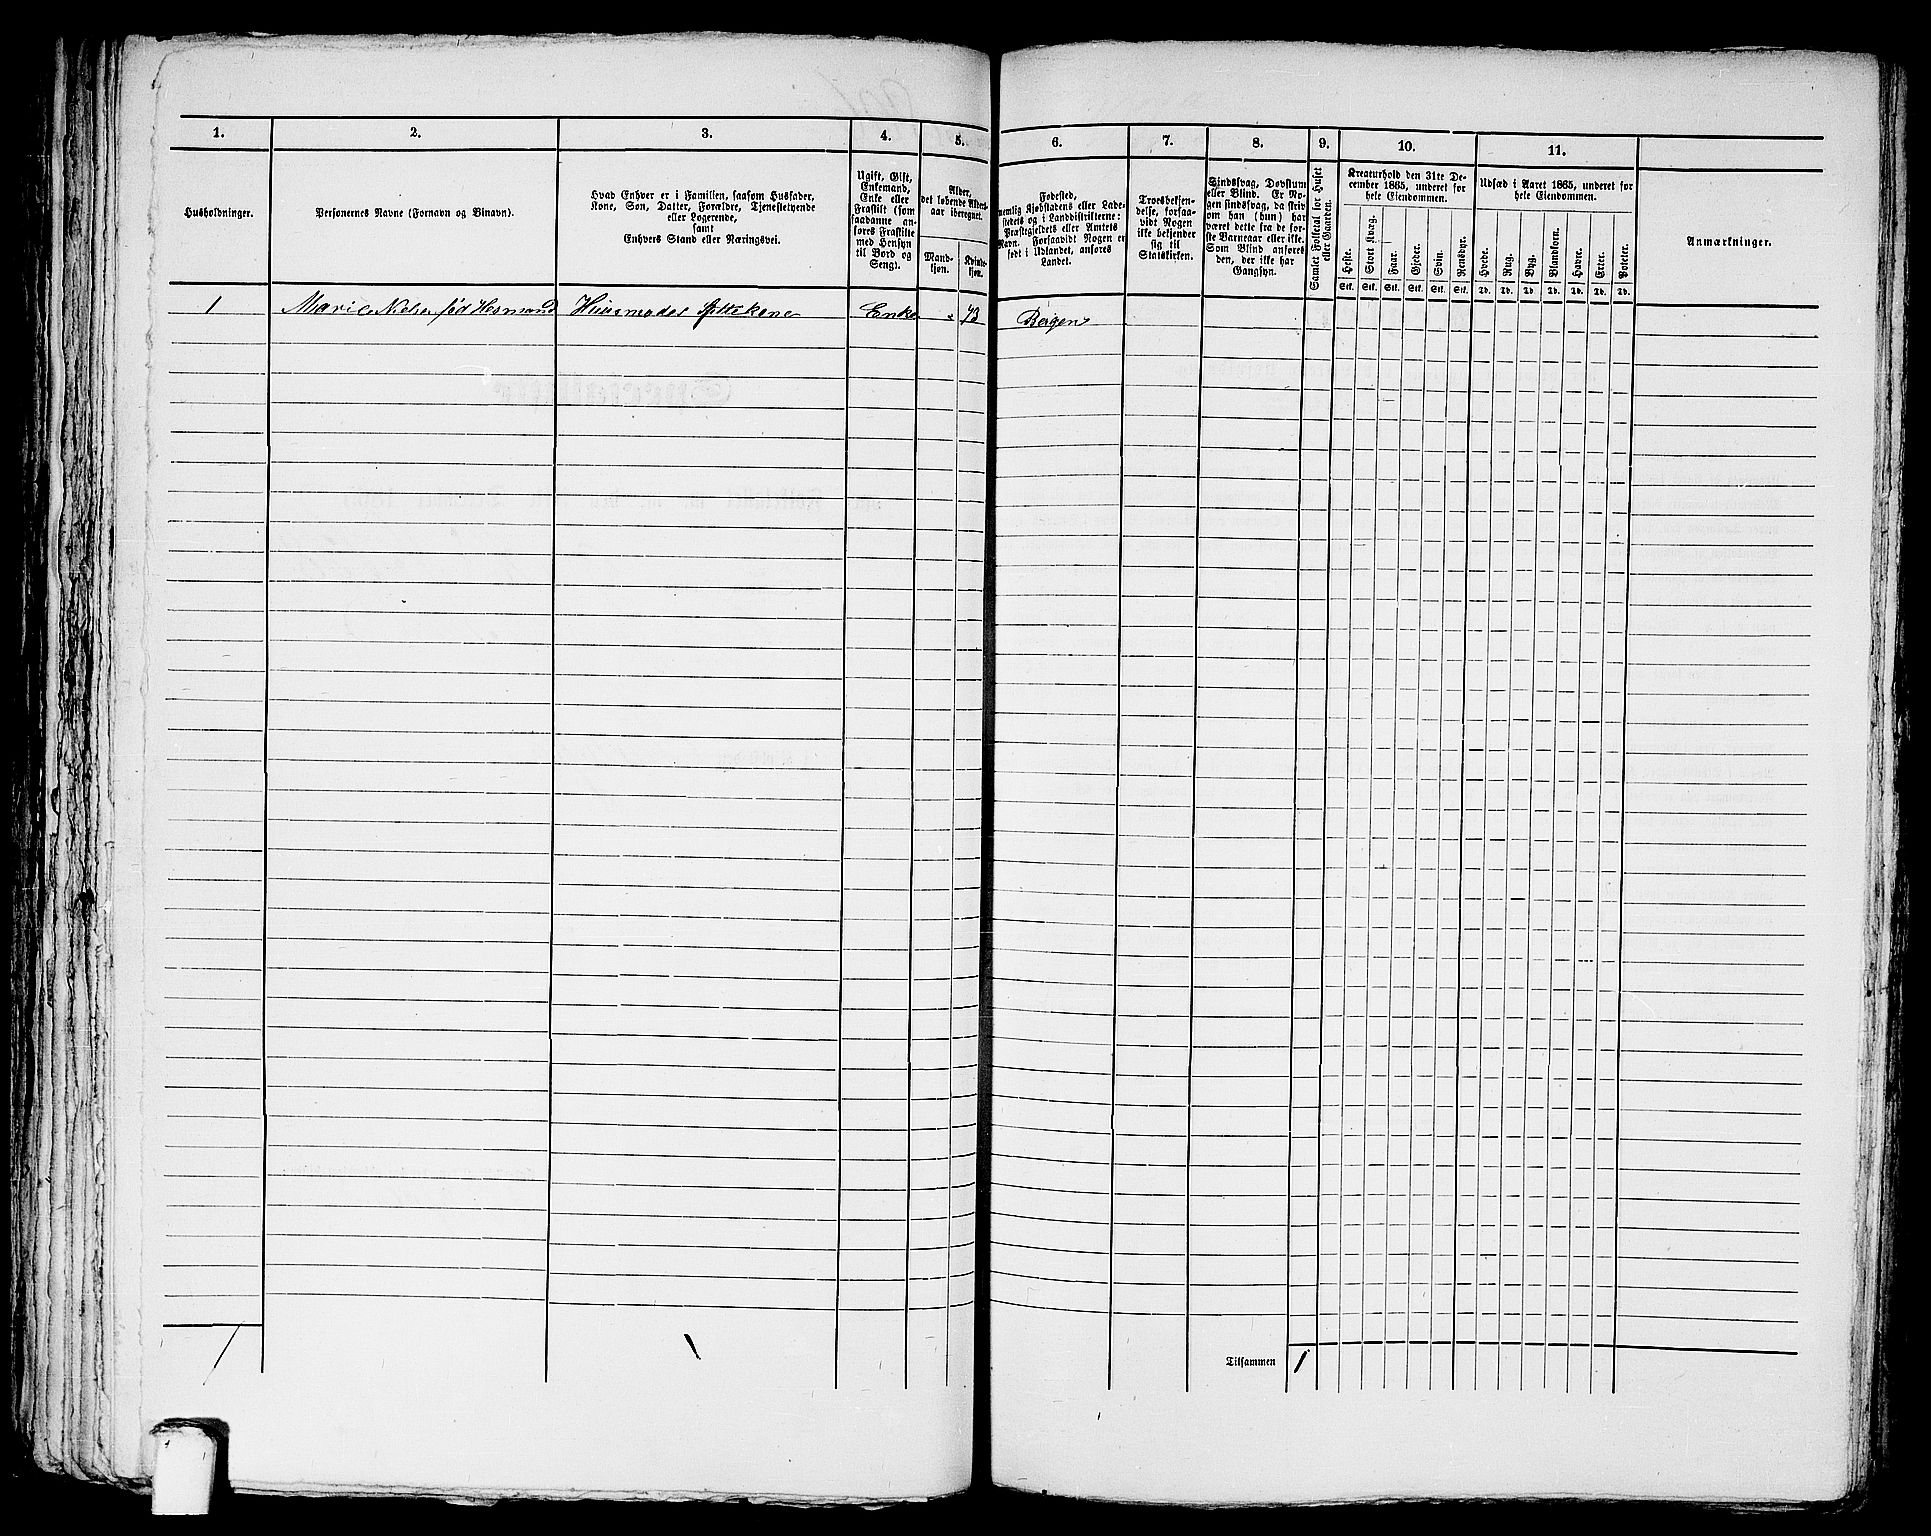 1. 2. 3. 4. 5. 6. 7. 8. 9. 10. 11.
Husholdninger.
Personernes Navne (Fornavn og Binavn).
Hvad Enhver er i Familien, saasom Husfader,
Kone, Søn, Datter, Forældre, Tjenestetyende
eller Logerende,
samt
Enhvers Stand eller Næringsvei.
Ugift, Gift,
Enkemand,
Enke eller
Fraskilt (som
saadanne an-
føres Fraskilte
med Hensyn
til Bord og
Seng).
Alder,
det løbende Alders-
aar iberegnet.
Mand-
kjøn.
Kvinde-
kjøn.
Fødested,
nemlig Kjøbstadens eller Lade-
stedets og i Landdistrikterne:
Præstegjeldets eller Amtets
Navn. Forsaavidt Nogen er
født i Udlandet, anføres
Landet.
Troesbekjen-
delse, forsaa-
vidt Nogen
ikke bekjender
sig til
Statskirken.
Sindssvag, Døvstum
eller Blind. Er No-
gen sindssvag, da skriv
om han (hun) har
været dette fra de før-
ste Barneaar eller ikke.
Som Blind anføres
den, der ikke har
Gangsyn.
Samlet Folketal for Huset
eller Gaarden.
Kreaturhold den 31te De-
cember 1865, underet for
hele Eiendommen.
Heste.
Stort Kvæg.
Faar.
Gjeder.
Svin.
Rensdyr.
Stk. Stk. Stk. Stk. Stk. Stk.
Udsæd i Aaret 1865, underet for
hele Eiendommen.
Hvede.
Rug.
Byg.
Blandkorn.
Havre.
Erter.
Poteter.
Td. Td. Td. Td. Td. Td. Td.
Anmærkninger.
1 Marie Nielsen fød Huusmoder Enke 73 Bergen
Tilsammen 1